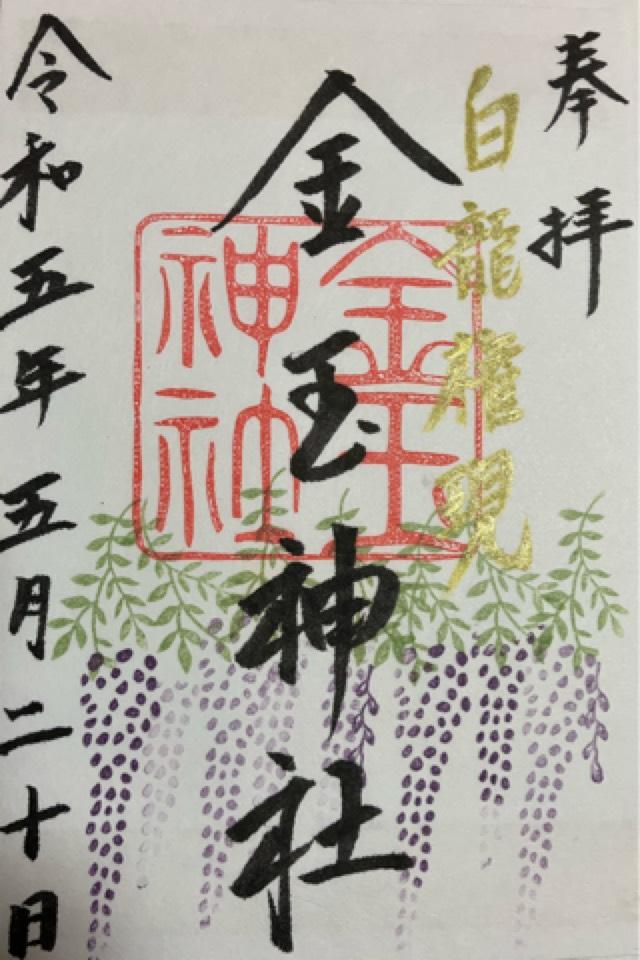 奉拝
白龍権現
金玉神社
金玉神社
令和五年五月二十日